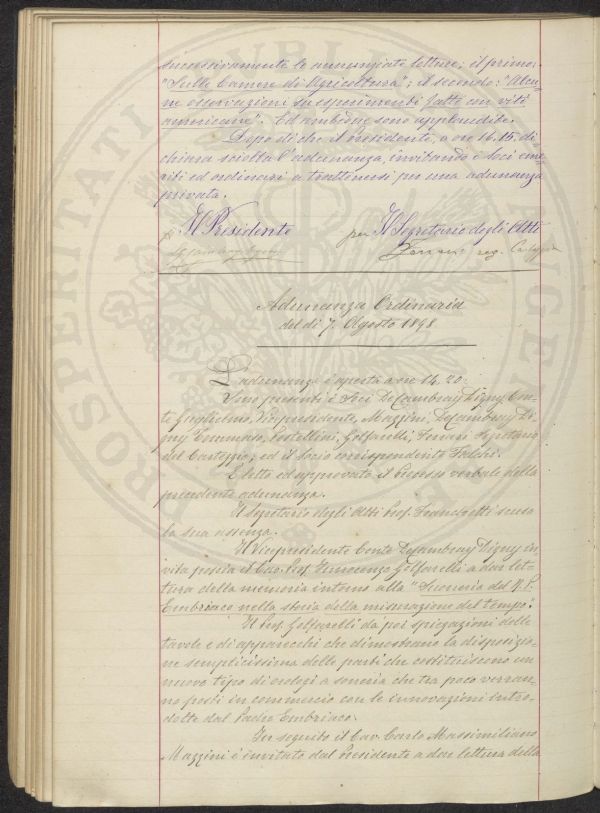 successivamente le annunziate letture; il primo:
"Sulle Camere di Agricoltura"; il secondo: "Alcu-
ne osservazioni su esperimenti fatte con viti
americane". Ed ambedue sono applaudite.
Dopo di che il Presidente, a ore 16.15. di-
chiara sciolta l'adunanza, invitando i Soci eme-
riti ed ordinari a trattenersi per una adunanza
privata.
Il Presidente per Il Segretario degli Atti
Ferrari seg. Carteggio
Adunanza Ordinaria
del dì 7. Agosto 1898
L'adunanza è aperta a ore 14.20.
Sono presenti i Soci De Cambray Digny Con-
te Guglielmo, Vicepresidente, Mazzini, De Cambray Di-
gny Tommaso, Pestellini, Golfarelli, Ferrari Segretario
del Carteggio, ed il socio corrispondente
È letto ed approvato il Processo verbale della
precedente adunanza.
Il Segretario degli Atti Prof. Franchetti scusa
la sua assenza.
Il Vicepresidente Conte De Cambray Digny in-
vita poscia il Cav. Prof. Innocenzo Golfarelli a dar let-
tura della memoria intorno alla "Suoneria del R. P.
Embriaco nella storia della misurazione del tempo".
Il Prof. Golfarelli dà poi spiegazioni delle
tavole e di apparecchi che dimostrano la disposizio-
ne semplicissima delle parti che costituiscono un
nuovo tipo di orologi a soneria che tra poco verran-
no posti in commercio con le innovazioni intro-
dotte dal Padre Embriaco.
In seguito il Cav. Carlo Massimiliano
Mazzini è invitato dal Presidente a dar lettura della
PROSPERITATI PUBLICAE